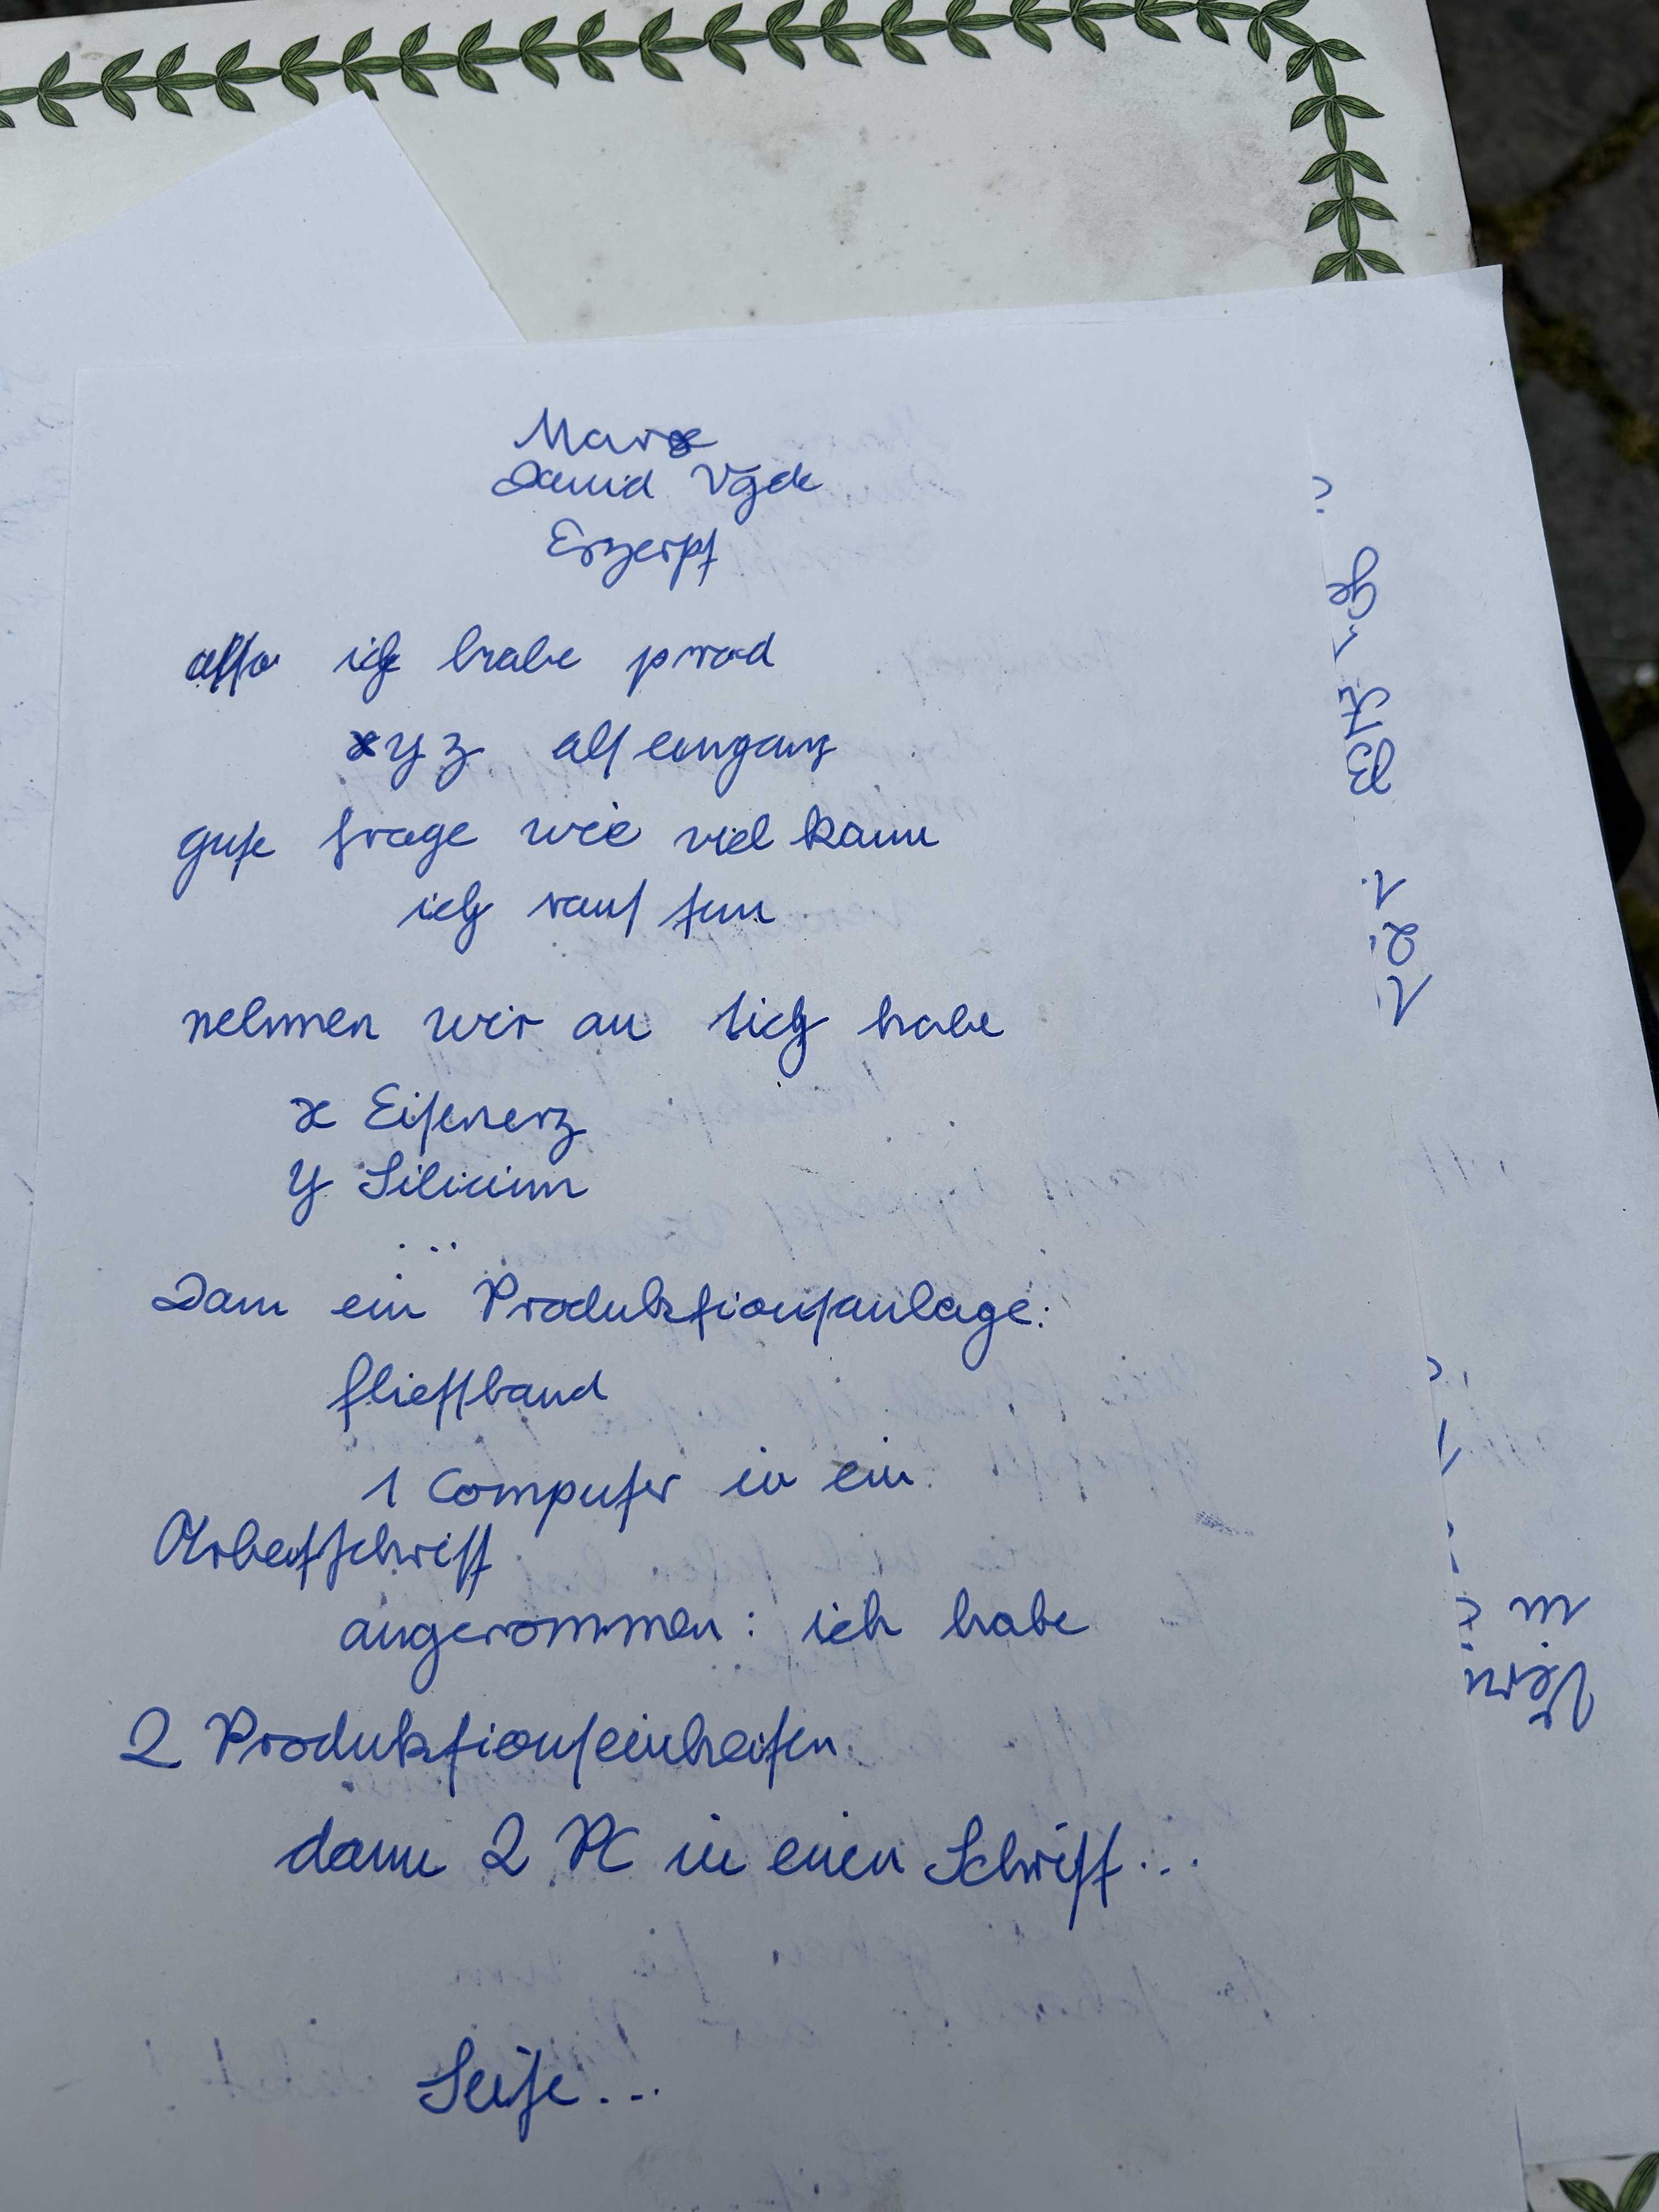 Marx
David Vgde
Exzerpt
also ich habe prod
x y z als eingang
gute frage wie viel kann
ich rauf tun
nehmen wir an ich habe
x Eisenerz
y Silicium
...
Dann ein Produktionsanlage:
fliessband
1 Computer in ein
Arbeitsschritt
angenommen: ich habe
2 Produktionseinheiten
dann 2 PC in einen Schritt...
Seite...